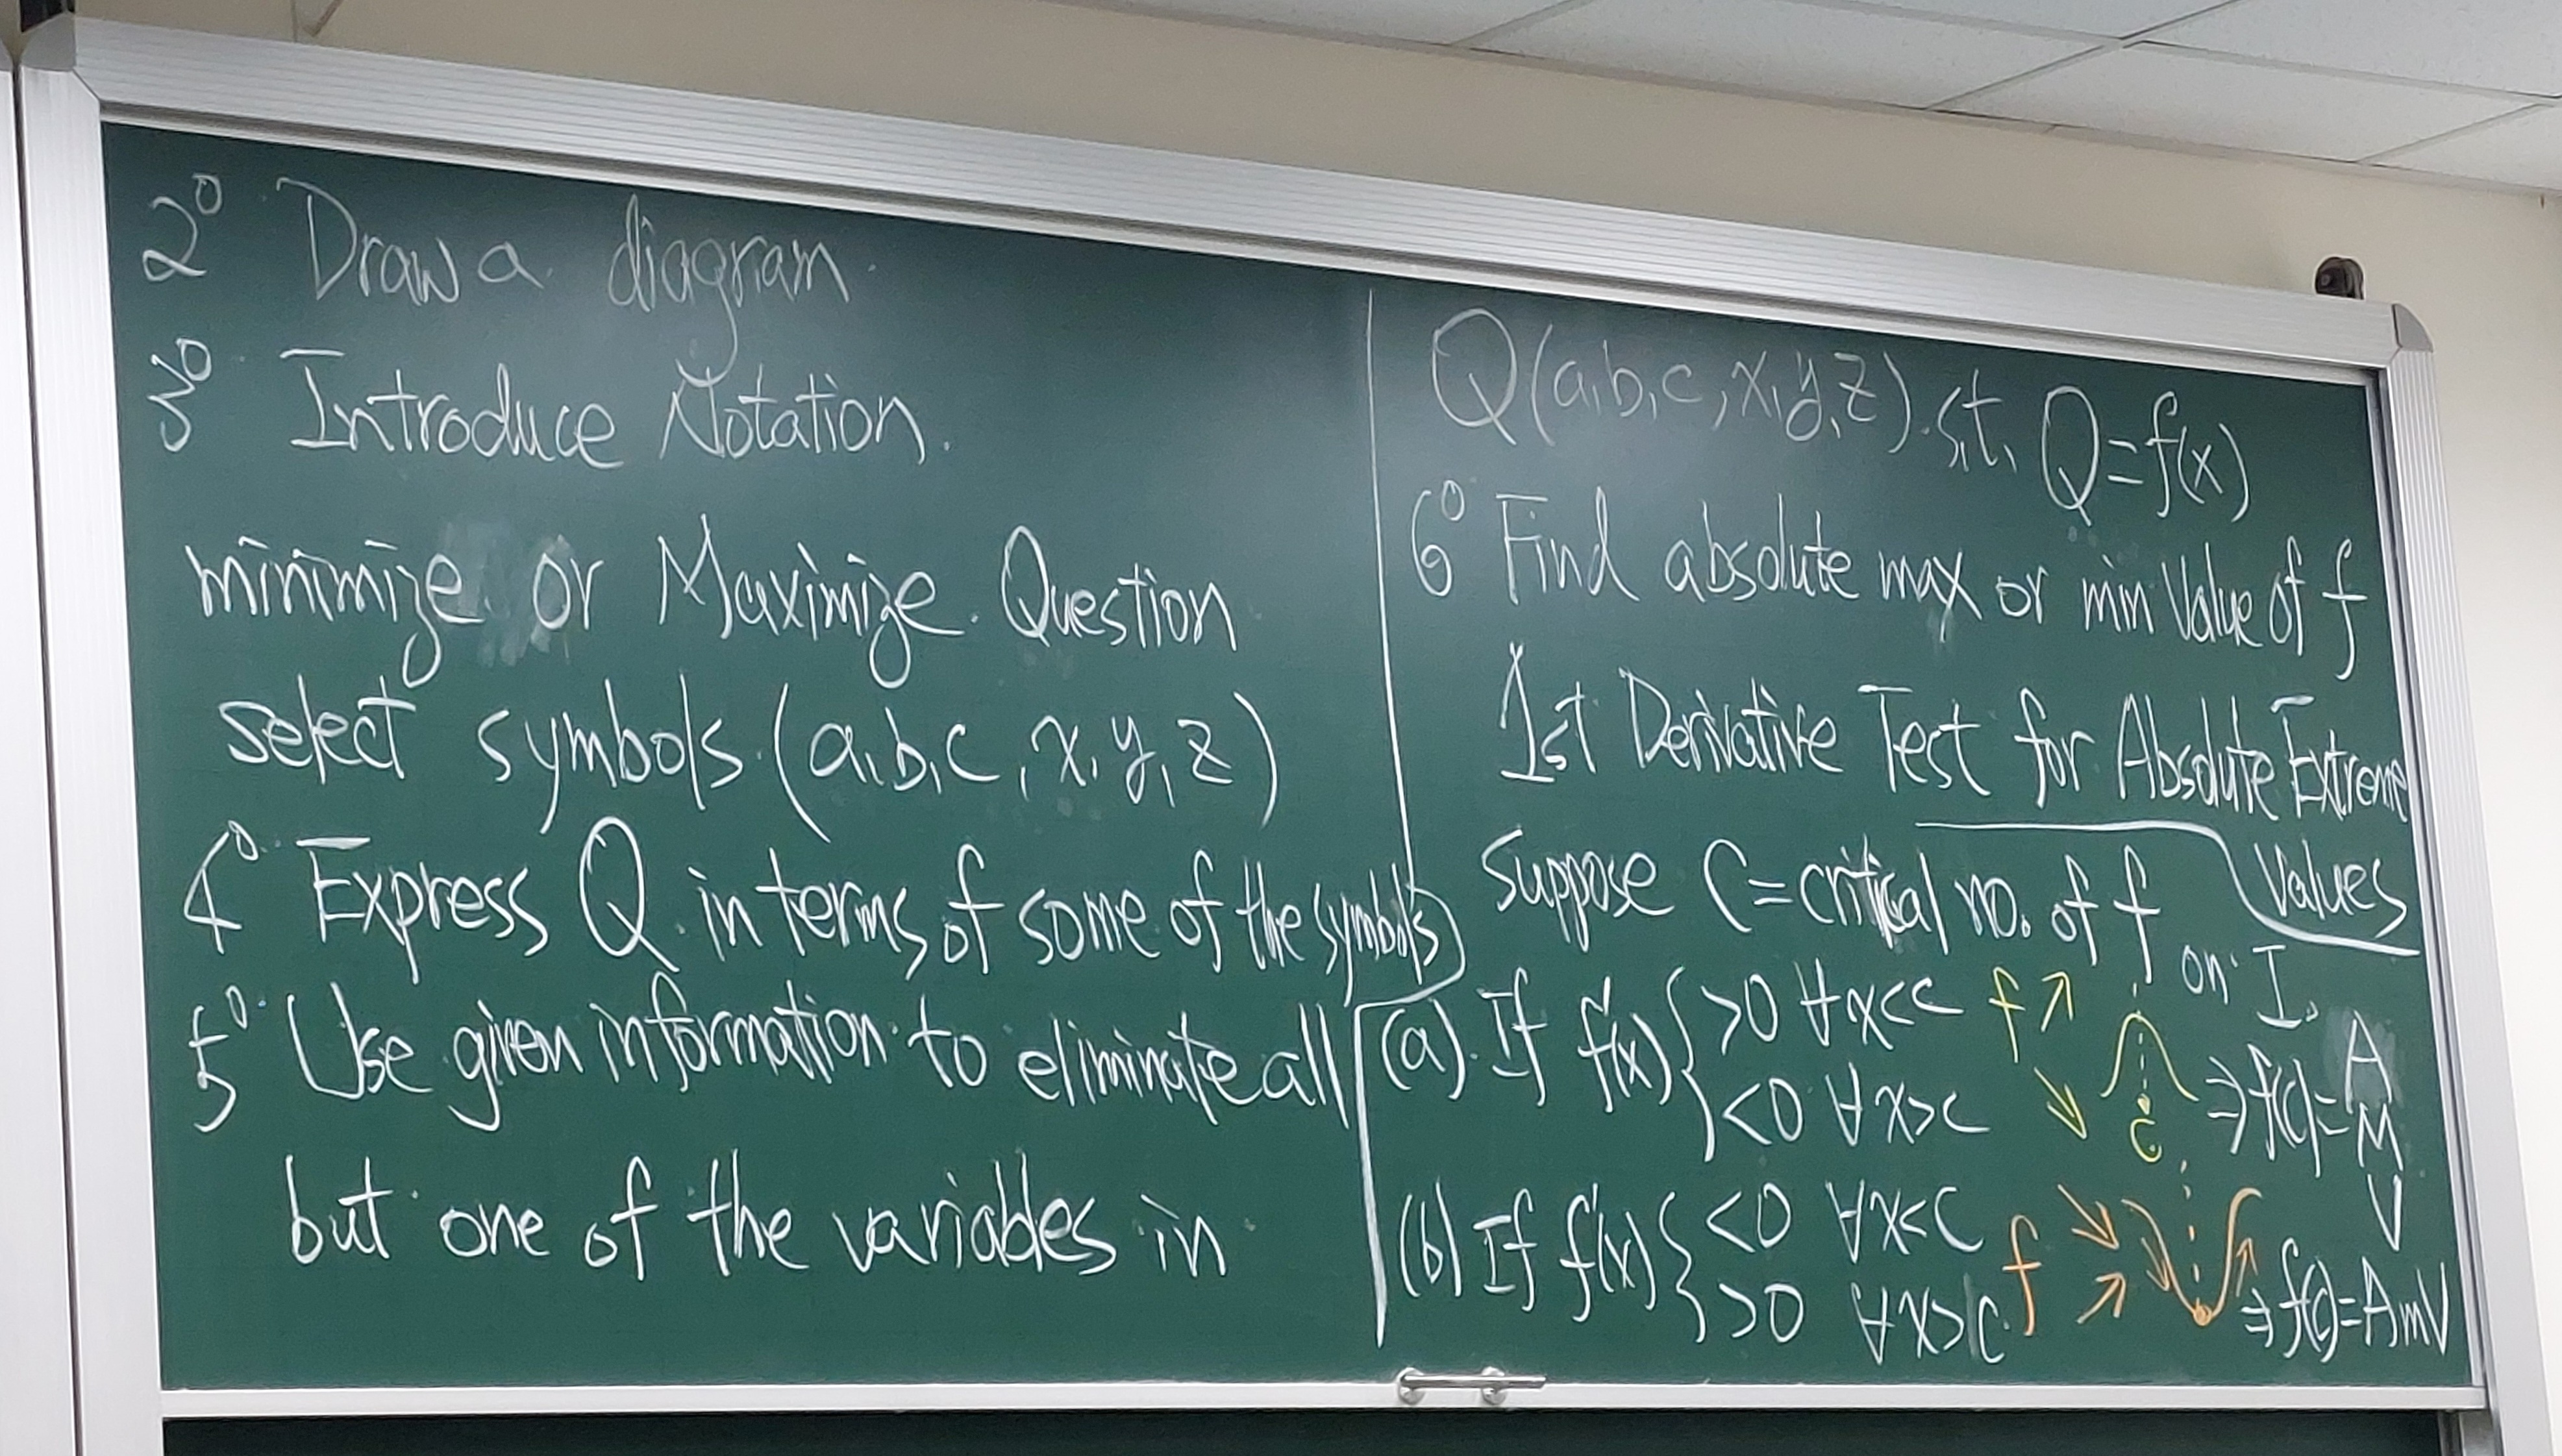 2⁰ Draw a diagram.
3⁰ Introduce Notation.
minimize or Maximize Question
select symbols (a,b,c,x,y,z)
4⁰ Express Q in terms of some of the symbols
5⁰ Use given information to eliminate all
but one of the variables in
Q(a,b,c,x,y,z) s,t, Q=f(x)
6⁰ Find absolute max or min Value of f
1st Derivative Test for Absolute Extreme
Values
Suppose C=critical no. of f on I.
(a) If f'(x) { >0 ∀x<c f ↗
<0 ∀x>c ↘ c ⇒ f(c)= A M V
(b) If f'(x) { <0 ∀x<c f ↘
>0 ∀x>c ↗ ⇒ f(c)=AmV